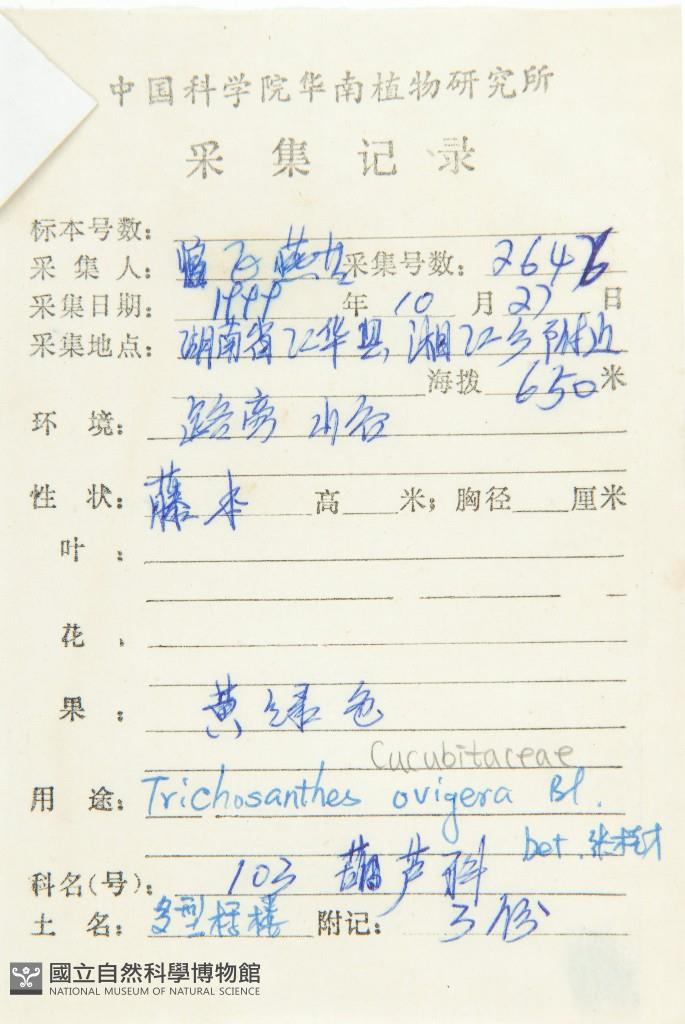 中国科学院华南植物研究所
采集记录
标本号数:
采集人: 曾飞燕 采集号数: 2646
采集日期: 1999 年 10 月 27 日
采集地点: 湖南省江华县,湘江乡附近
海拨 650 米
环境: 路旁 水谷
性状: 藤本 高 米; 胸径 厘米
叶:
花
果: 黄绿色
Cucubitaceae
用途: Trichosanthes ovigera Bl.
Det.
科名(号): 103 葫芦科
土名: 多型栝楼 附记: 3份
國立自然科學博物館
NATIONAL MUSEUM OF NATURAL SCIENCE